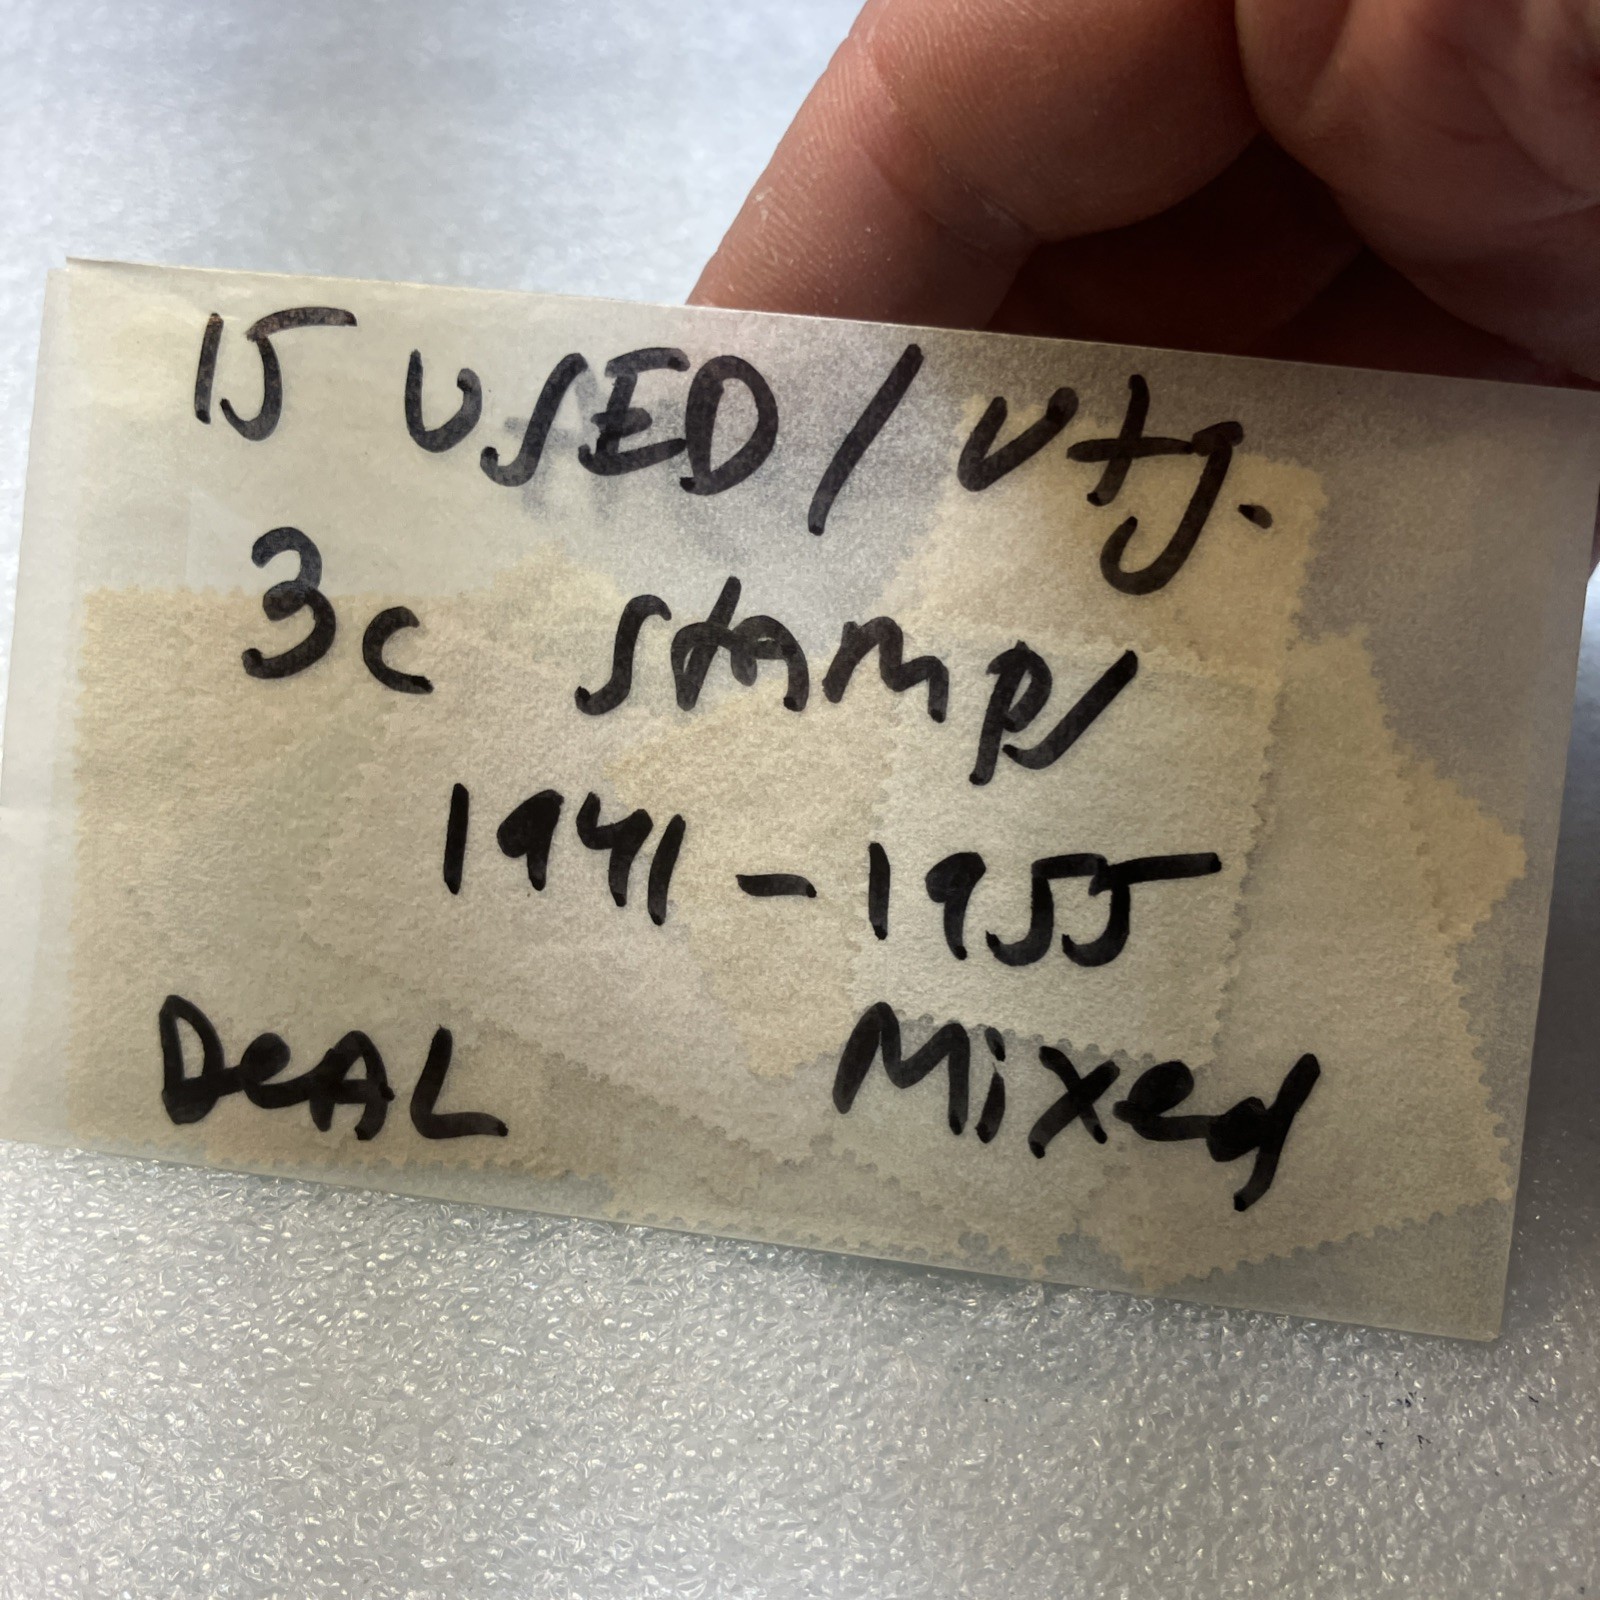 15 USED / Vtg.
3c Stamps
1941 - 1955
DeAL Mixed